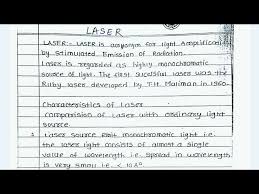 LASER
LASER:- LASER is acronym for light Amplification
by Stimulated Emission of Radiation.
Laser is regarded as highly monochromatic
source of light. The first sucessful laser was the
Ruby laser developed by T.H. Maiman in 1960.
Characteristics of Laser
comparision of Laser with ordinary light
source
1 Laser source emit monochromatic light i.e.
the laser light consists of almost a single
value of wavelength i.e. spread in wavelength
is very small i.e. <